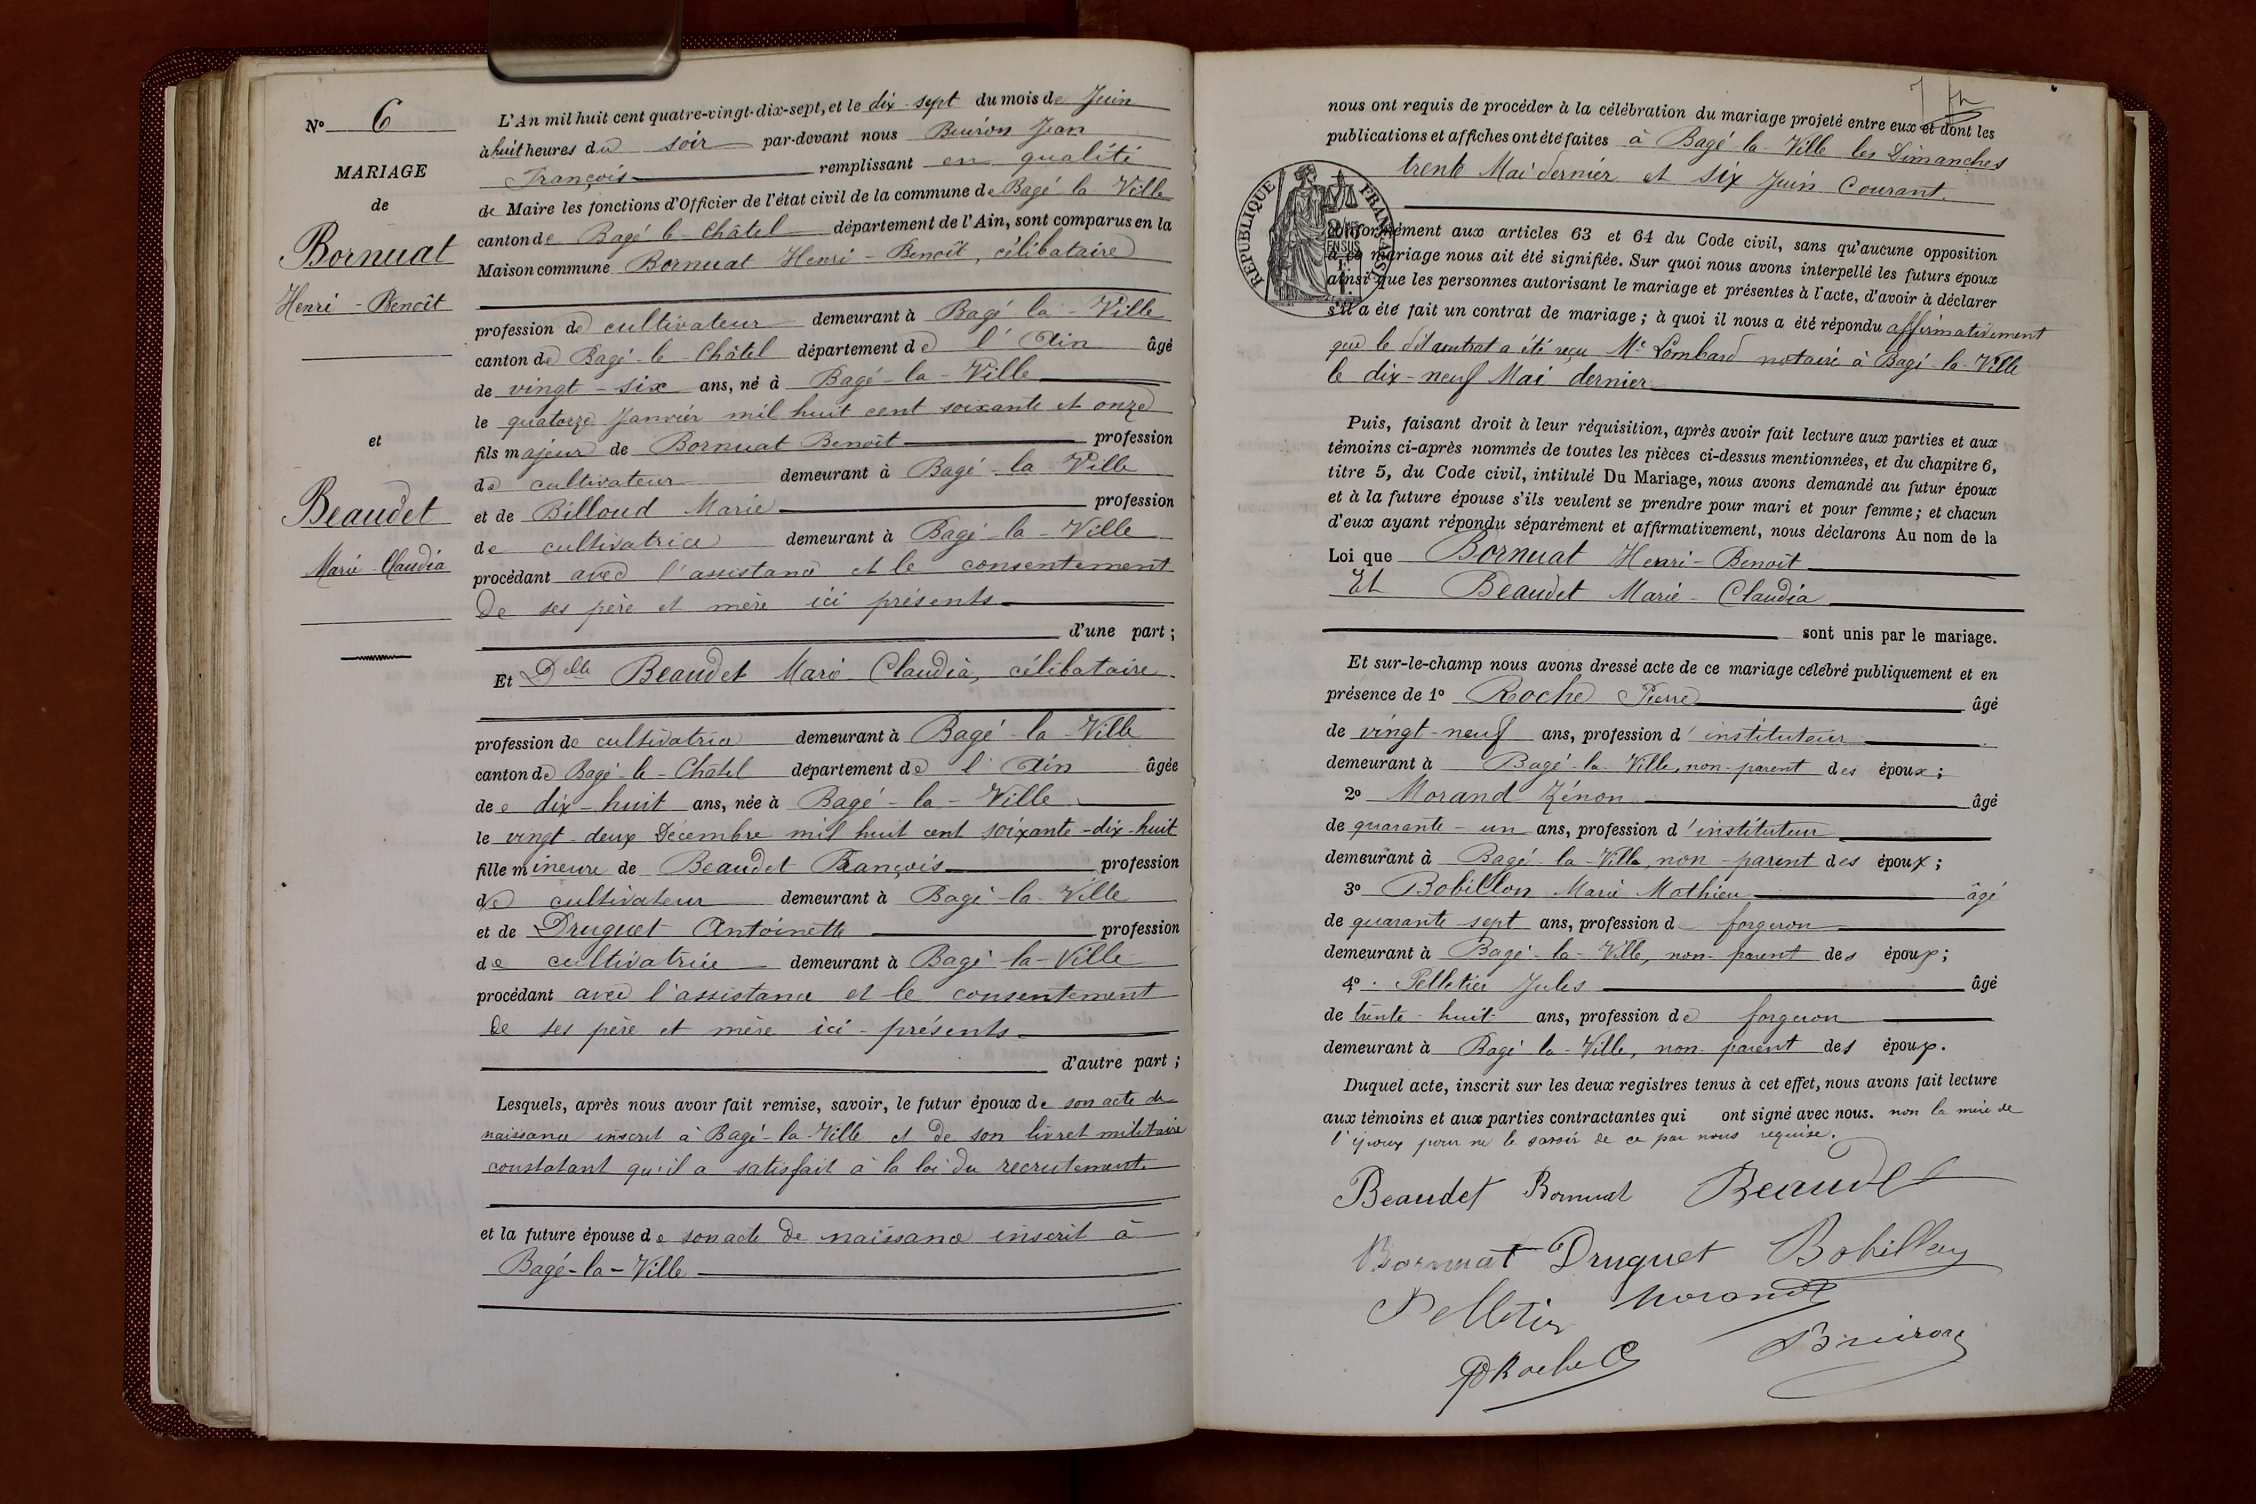 N° 6
MARIAGE
de
Bornuat
Henri - Benoît
et
Beaudet
Marie Claudia
L'An mil huit cent quatre-vingt-dix-sept, et le dix-sept du mois de Juin
à huit heures du soir par-devant nous Buiron Jean
François remplissant en qualité
de Maire les fonctions d'Officier de l'état civil de la commune de Bagé-la-Ville
canton de Bagé-le-Châtel département de l'Ain, sont comparus en la
Maison commune Bornuat Henri-Benoît, célibataire
profession de cultivateur demeurant à Bagé-la-Ville
canton de Bagé-le-Châtel département de l'Ain âgé
de vingt-six ans, né à Bagé-la-Ville
le quatorze Janvier mil huit cent soixante et onze
fils majeur de Bornuat Benoît profession
de cultivateur demeurant à Bagé-la-Ville
et de Billoud Marie profession
de cultivatrice demeurant à Bagé-la-Ville
procédant avec l'assistance et le consentement
de ses père et mère ici présents
d'une part ;
Et Delle Beaudet Marie-Claudia, célibataire
profession de cultivatrice demeurant à Bagé-la-Ville
canton de Bagé-le-Châtel département de l'Ain âgée
de dix-huit ans, née à Bagé-la-Ville
le vingt-deux Décembre mil huit cent soixante-dix-huit
fille mineure de Beaudet François profession
de cultivateur demeurant à Bagé-la-Ville
et de Druguet Antoinette profession
de cultivatrice demeurant à Bagé-la-Ville
procédant avec l'assistance et le consentement
de ses père et mère ici-présents
d'autre part ;
Lesquels, après nous avoir fait remise, savoir, le futur époux de son acte de
naissance inscrit à Bagé-la-Ville et de son livret militaire
constatant qu'il a satisfait à la loi du recrutement.
et la future épouse de son acte de naissance inscrit à
Bagé-la-Ville
nous ont requis de procéder à la célébration du mariage projeté entre eux et dont les
publications et affiches ont été faites à Bagé-la-Ville les Dimanches
trente Mai dernier et six Juin Courant.
RÉPUBLIQUE FRANÇAISE
Conformément aux articles 63 et 64 du Code civil, sans qu'aucune opposition
à ce mariage nous ait été signifiée. Sur quoi nous avons interpellé les futurs époux
ainsi que les personnes autorisant le mariage et présentes à l'acte, d'avoir à déclarer
s'il a été fait un contrat de mariage ; à quoi il nous a été répondu affirmativement
que le dit contrat a été reçu Me Lombard notaire à Bagé-la-Ville
le dix-neuf Mai dernier
Puis, faisant droit à leur réquisition, après avoir fait lecture aux parties et aux
témoins ci-après nommés de toutes les pièces ci-dessus mentionnées, et du chapitre 6,
titre 5, du Code civil, intitulé Du Mariage, nous avons demandé au futur époux
et à la future épouse s'ils veulent se prendre pour mari et pour femme ; et chacun
d'eux ayant répondu séparément et affirmativement, nous déclarons Au nom de la
Loi que Bornuat Henri-Benoît
Et Beaudet Marie-Claudia
sont unis par le mariage.
Et sur-le-champ nous avons dressé acte de ce mariage célébré publiquement et en
présence de 1° Roche Pierre âgé
de vingt-neuf ans, profession d'instituteur
demeurant à Bagé-la-Ville, non-parent des époux ;
2° Morand Zénon âgé
de quarante-un ans, profession d'instituteur
demeurant à Bagé-la-Ville, non-parent des époux ;
3° Bobillon Marie Mathieu âgé
de quarante sept ans, profession de forgeron
demeurant à Bagé-la-Ville, non-parent des époux ;
4° Pelletier Jules âgé
de trente-huit ans, profession de forgeron
demeurant à Bagé-la-Ville, non-parent des époux.
Duquel acte, inscrit sur les deux registres tenus à cet effet, nous avons fait lecture
aux témoins et aux parties contractantes qui ont signé avec nous. non la mère de
l'époux pour ne le savoir de ce par nous requise.
Beaudet Bornuat Beaudet
Bornuat Druguet Bobillon
Pelletier Morand
P Roche Buiron